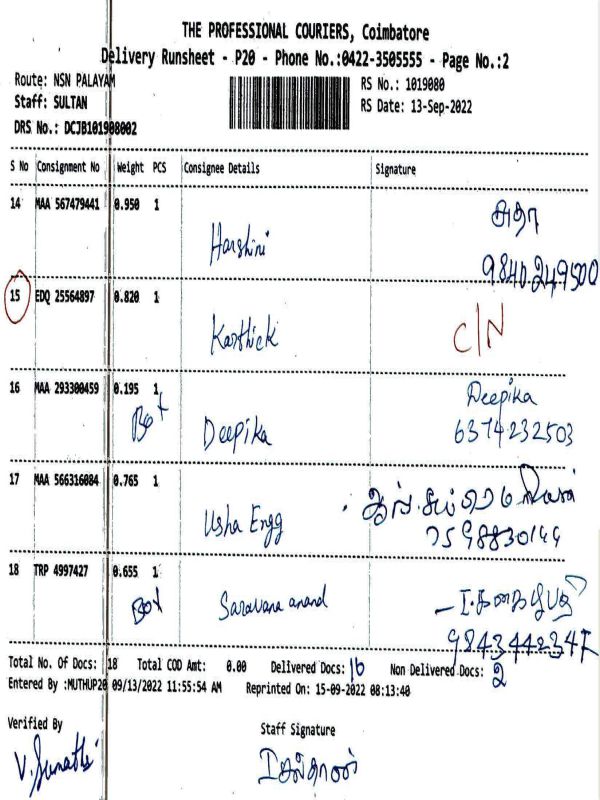 THE PROFESSIONAL COURIERS, Coimbatore
Delivery Runsheet - P20 - Phone No.:0422-3505555 - Page No.:2
Route: NSN PALAYAM RS No.: 1019080
Staff: SULTAN RS Date: 13-Sep-2022
DRS No.: DCJB101908002
S No Consignment No Weight PCS Consignee Details Signature
14 MAA 567479441 0.950 1 சுதா
Harshini 9840249500
15 EDQ 25564897 0.820 1
Karthick C/N
16 MAA 293300459 0.195 1 Deepika
Box Deepika 6374232503
17 MAA 566316084 0.765 1
Usha Engg 7598830144
18 TRP 4997427 0.655 1
Box Saravana anand
984344234
Total No. Of Docs: 18 Total COD Amt: 0.00 Delivered Docs: 16 Non Delivered Docs: 2
Entered By :MUTHUP20 09/13/2022 11:55:54 AM Reprinted On: 15-09-2022 08:13:40
Verified By Staff Signature
V. Sumathi சுல்தான்